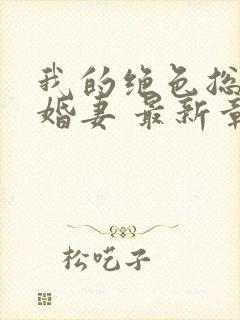 我的绝色总
婚妻 最新章
松吃子